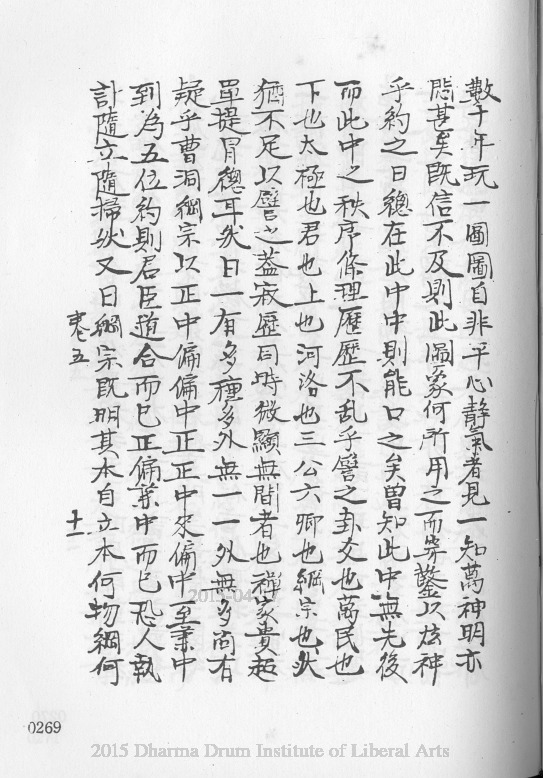 數十年玩一圖圖自非平心靜氣者見一知萬神明亦
悶甚矣既信不及則此圖象何所用之而穿鑿以炫神
乎約之曰總在此中中則能口之矣曾知此中無先後
而此中之秩序條理歷歷不乱乎譬之卦爻也萬民也
下也太極也君也上也河洛也三公六卿也綱宗也犬
猶不足以譬之蓋寂歷同時微顯無間者也禪家貴超
單提冐總耳然曰一有多種多外無一一外無多尚有
疑乎曹洞綱宗以正中偏偏中正正中來偏中至兼中
到為五位約則君臣道合而已正偏兼中而已恐人執
計隨立隨掃然又曰綱宗既明其本自立本何物綱何
卷五
十一
2015-04-17
0269
2015 Dharma Drum Institute of Liberal Arts